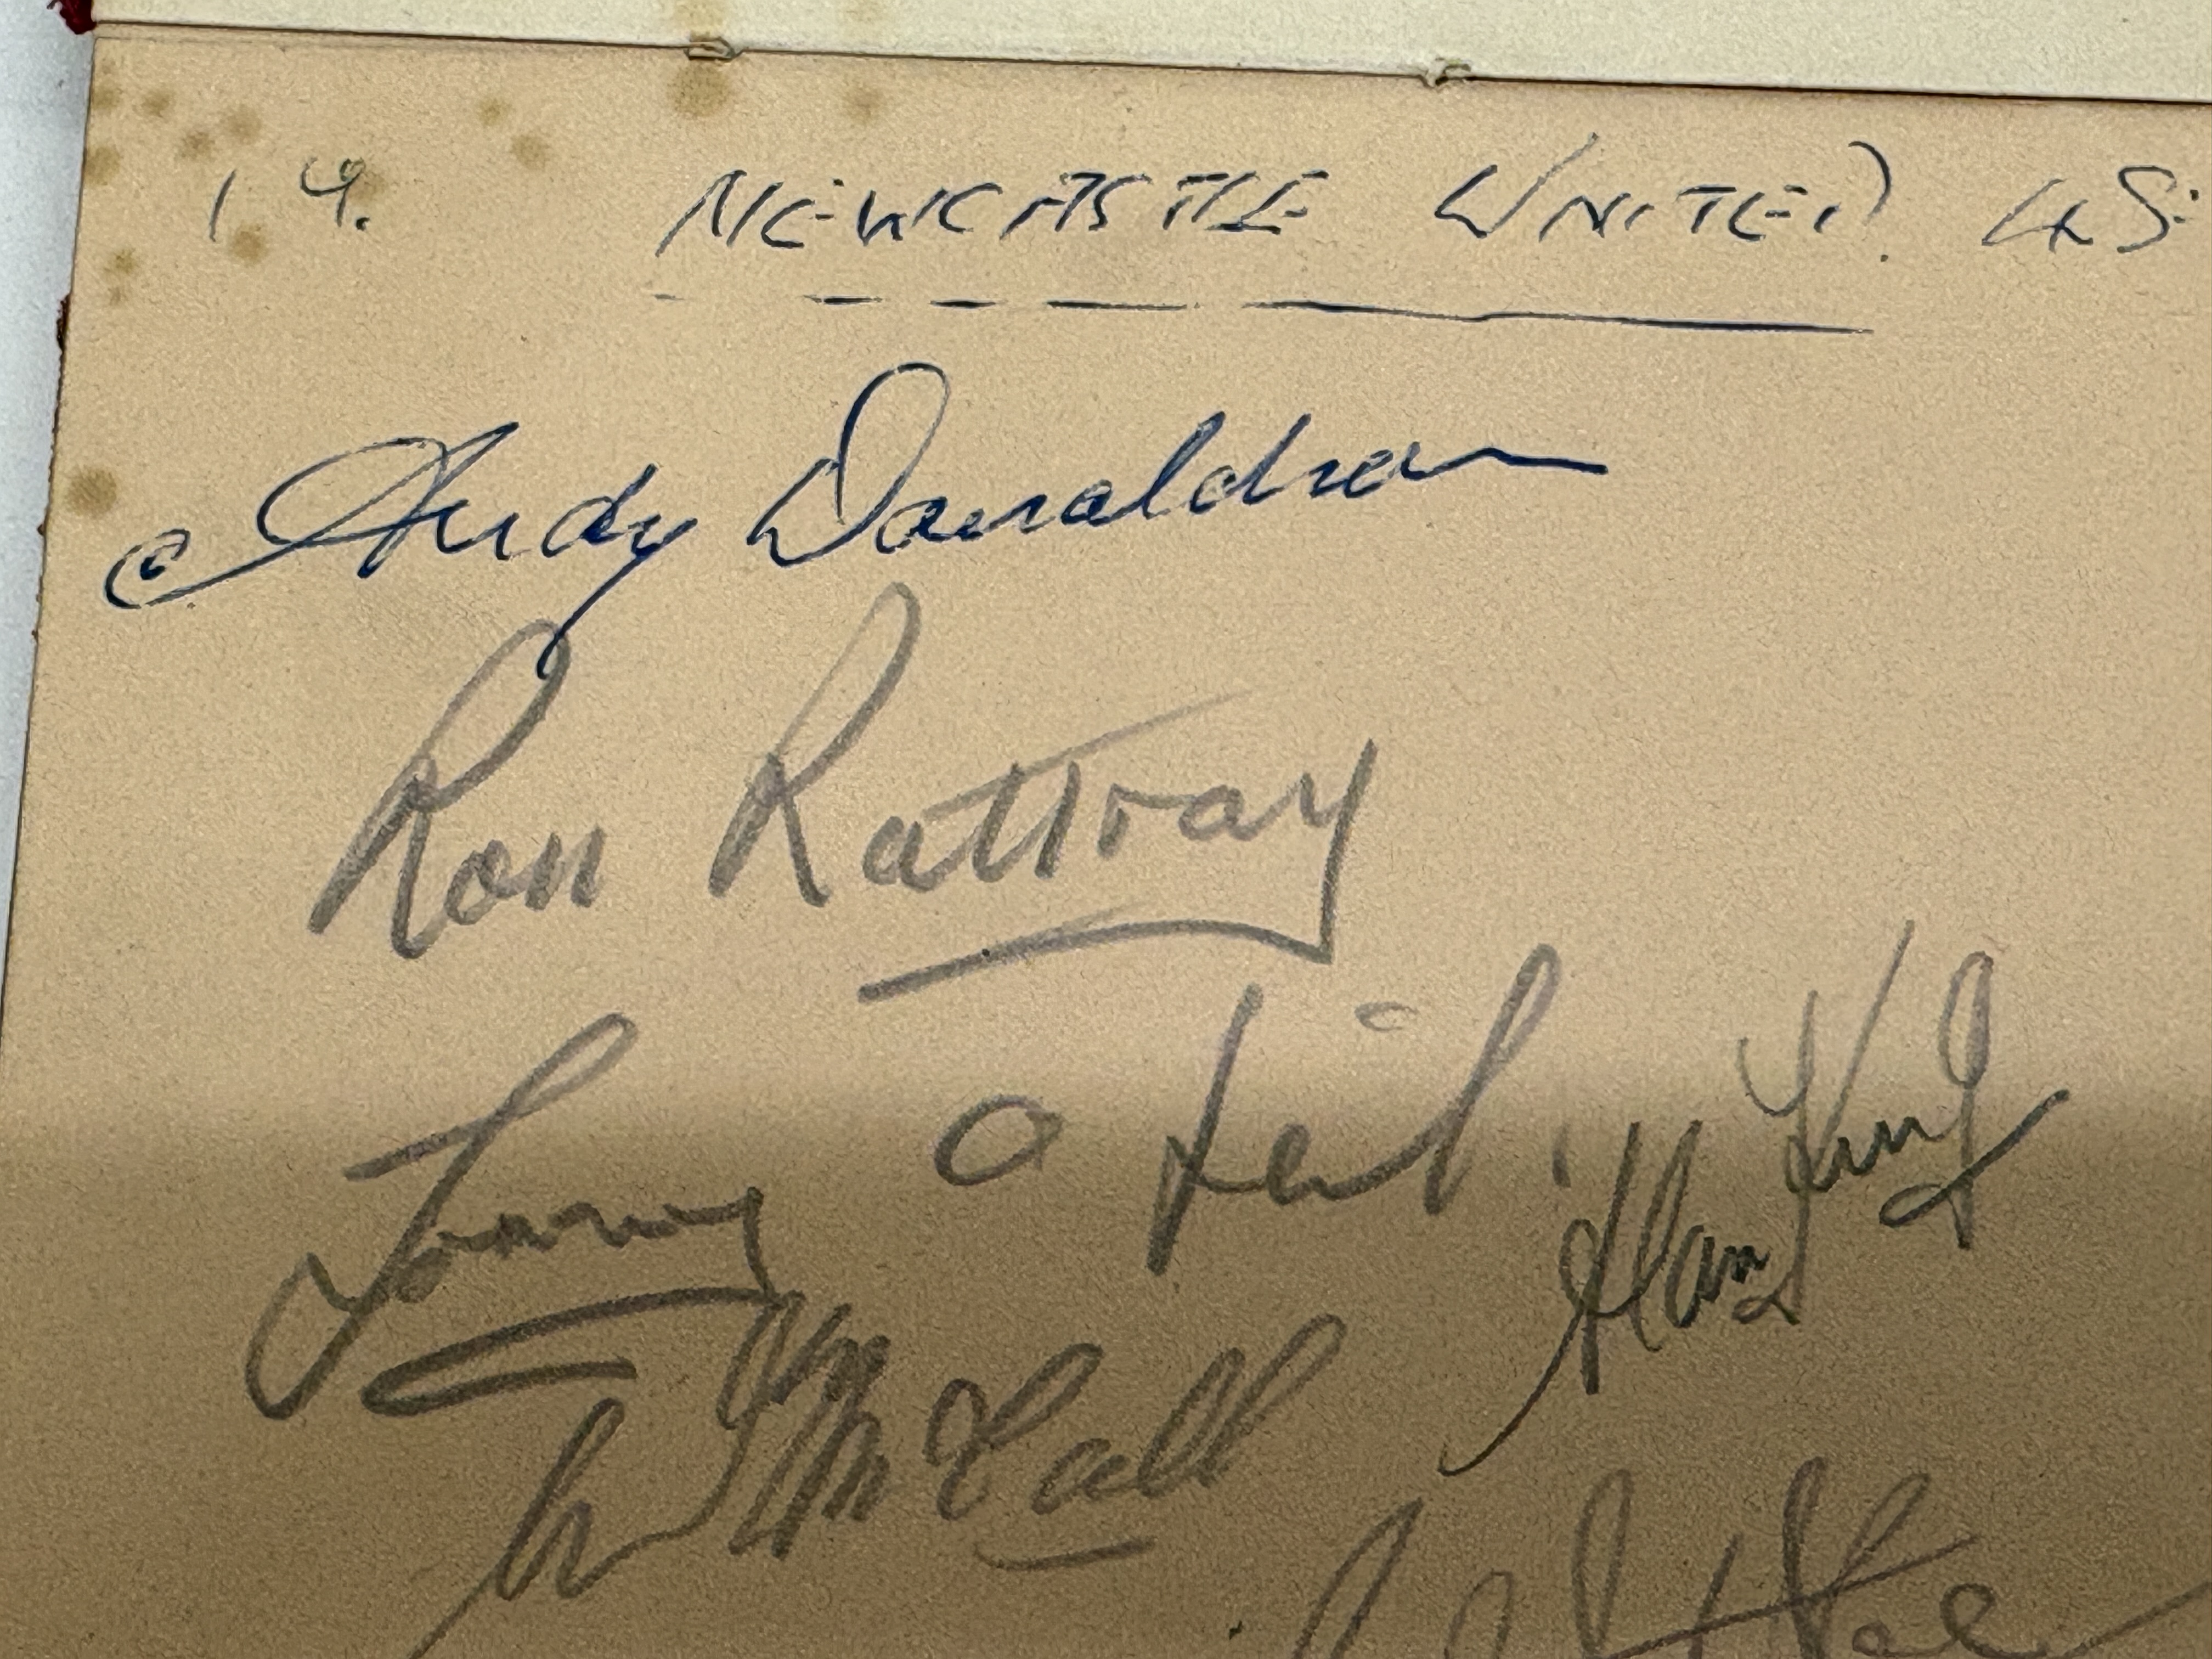 14. NEWCASTLE UNITED. 48
Andy Donaldson
Ron Rattray
Tommy
Alan King
W McCall